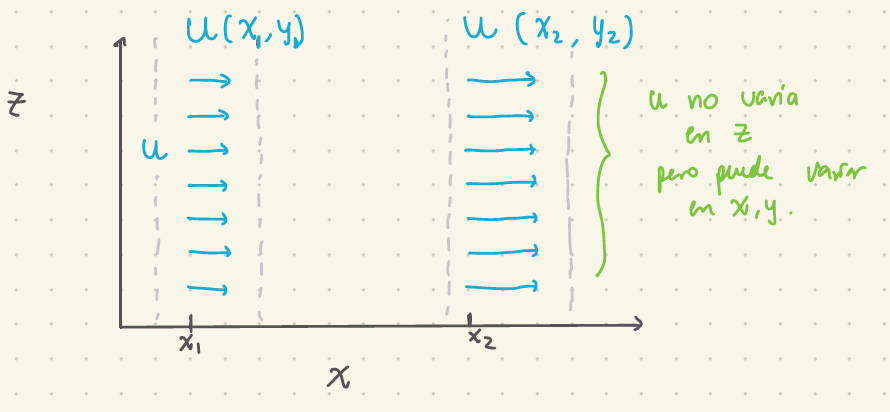 u(x₁,y₁)
u (x₂, y₂)
z
u
u no varia
en z
pero puede variar
en x, y.
x₁
x₂
x